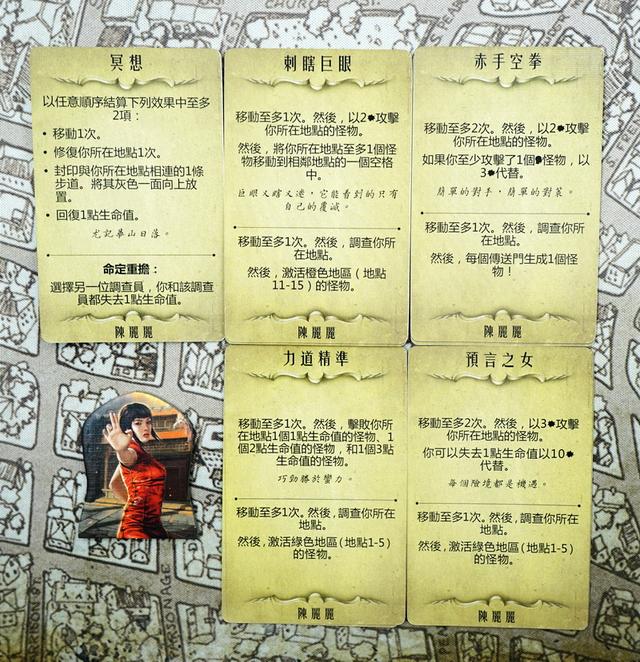 冥想
以任意順序結算下列效果中至多
2項：
• 移動1次。
• 修復你所在地點1次。
• 封印與你所在地點相連的1條
步道。將其灰色一面向上放
置。
• 回復1點生命值。
尤記華山日落。
命定重擔：
選擇另一位調查員，你和該調查
員都失去1點生命值。
陳麗麗
刺瞎巨眼
移動至多1次。然後，以2攻擊
你所在地點的怪物。
然後，將你所在地點至多1個怪
物移動到相鄰地點的一個空格
中。
巨眼又瞎又迷，它能看到的只有
自己的覆滅。
移動至多1次。然後，調查你所
在地點。
然後，激活橙色地區（地點
11-15）的怪物。
陳麗麗
赤手空拳
移動至多2次。然後，以2攻擊
你所在地點的怪物。
如果你至少攻擊了1個怪物，以
3代替。
簡單的對手，簡單的對策。
移動至多1次。然後，調查你所
在地點。
然後，每個傳送門生成1個怪
物！
陳麗麗
力道精準
移動至多1次。然後，擊敗你所
在地點1個1點生命值的怪物、1
個2點生命值的怪物，和1個3點
生命值的怪物。
巧勁勝於蠻力。
移動至多1次。然後，調查你所在
地點。
然後，激活綠色地區（地點1-5）
的怪物。
陳麗麗
預言之女
移動至多2次。然後，以3攻擊
你所在地點的怪物。
你可以失去1點生命值以10
代替。
每個險境都是機遇。
移動至多1次。然後，調查你所在
地點。
然後，激活綠色地區（地點1-5）
的怪物。
陳麗麗